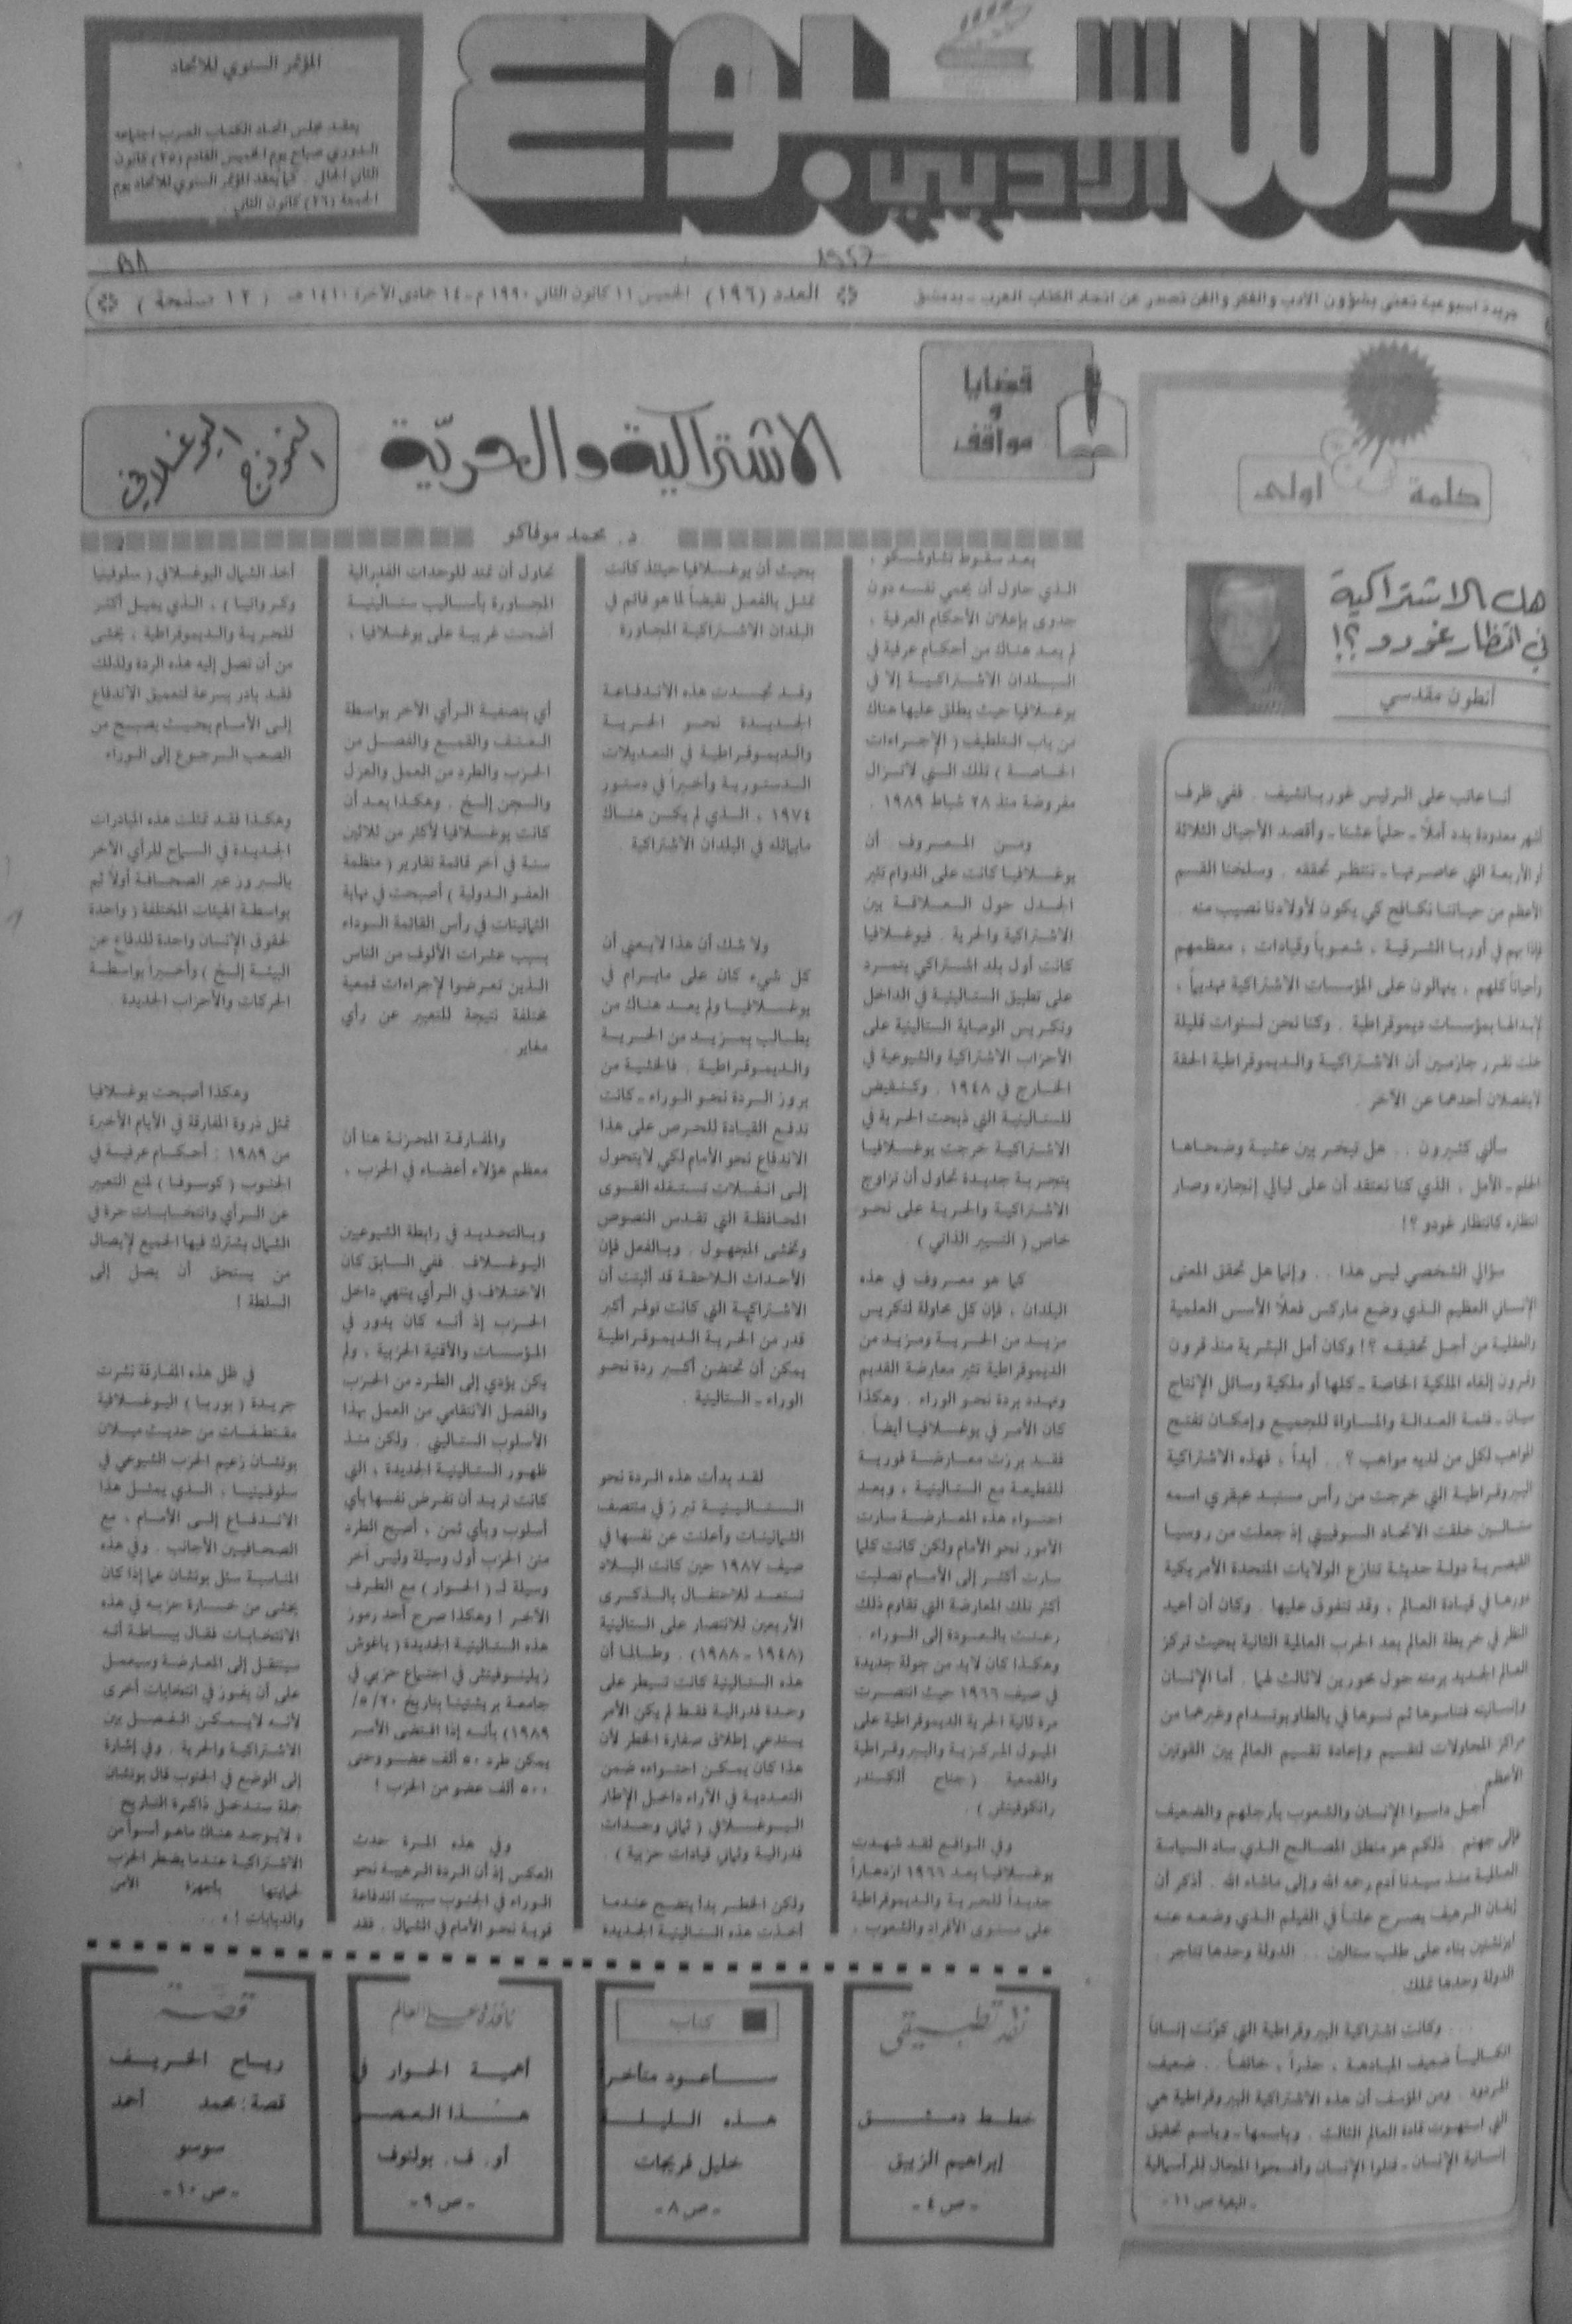 الأسبوع
الأدبي
المؤتمر السنوي للاتحاد
يعقد مجلس اتحاد الكتاب العرب اجتماعه
الدوري صباح يوم الخميس القادم (٢٥) كانون
الثاني الحالي . كما يعقد المؤتمر السنوي للاتحاد يوم
الجمعة (٢٦) كانون الثاني .
جريدة اسبوعية تعنى بشؤون الادب والفكر والفن تصدر عن اتحاد الكتاب العرب ـ بدمشق
العدد (١٩٦) الخميس ١١ كانون الثاني ١٩٩٠ م ـ ١٤ جمادى الآخرة ١٤١٠ هـ ( ١٢ صفحة )
كلمة أولى
هل الاشتراكية
في انتظار غودو ؟!
أنطون مقدسي
أنا عاتب على الرئيس غورباتشيف . ففي ظرف
أشهر معدودة بدد أملاً ـ حلماً عشنا ـ وأقصد الأجيال الثلاثة
أو الأربعة التي عاصرتها ـ ننتظر تحققه . وسلخنا القسم
الأعظم من حياتنا نكافح كي يكون لأولادنا نصيب منه .
فإذا بهم في أوربا الشرقية ، شعوباً وقيادات ، معظمهم
وأحياناً كلهم ، ينهالون على المؤسسات الاشتراكية تهديماً ،
لإبدالها بمؤسسات ديموقراطية . وكنا نحن لسنوات قليلة
خلت نقرر جازمين أن الاشتراكية والديموقراطية الحقة
لاينفصلان أحدهما عن الآخر .
سألني كثيرون . . هل تبخر بين عشية وضحاها
الحلم ـ الأمل ، الذي كنا نعتقد أن على ليالي إنجازه وصار
انتظاره كانتظار غودو ؟!
سؤالي الشخصي ليس هذا . . وإنما هل تحقق المعنى
الإنساني العظيم الذي وضع ماركس فعلاً الأسس العلمية
والعقلية من أجل تحقيقه ؟! وكان أمل البشرية منذ قرون
وقرون إلغاء الملكية الخاصة ـ كلها أو ملكية وسائل الإنتاج
سيان ـ قمة العدالة والمساواة للجميع وإمكان تفتح
المواهب لكل من لديه مواهب ؟ . . أبداً ، فهذه الاشتراكية
البيروقراطية التي خرجت من رأس مستبد عبقري اسمه
ستالين خلقت الاتحاد السوفييتي إذ جعلت من روسيا
القيصرية دولة حديثة تنازع الولايات المتحدة الأمريكية
دورها في قيادة العالم ، وقد تتفوق عليها . وكان أن أعيد
النظر في خريطة العالم بعد الحرب العالمية الثانية بحيث تركز
العالم الجديد برمته حول محورين لاثالث لهما . أما الإنسان
وإنسانيته فتناسوها ثم نسوها في يالطا وبوتسدام وغيرهما من
مراكز المحاولات لتقسيم وإعادة تقسيم العالم بين القوتين
الأعظم
أجل داسوا الإنسان والشعوب بأرجلهم والضعيف
فإلى جهنم . ذلكم هو منطق المصالح الذي ساد السياسة
العالمية منذ سيدنا آدم رحمه الله وإلى ماشاء الله . أذكر أن
إيفان الرهيف يصرح علناً في الفيلم الذي وضعه عنه
ايزنشتين بناء على طلب ستالين . . الدولة وحدها تتاجر .
الدولة وحدها تملك .
وكانت اشتراكية البيروقراطية التي كوّنت إنساناً
اتكالياً ضعيف المبادهة ، حذراً ، خائفاً . . ضعيف
المردود . ومن المؤسف أن هذه الاشتراكية البيروقراطية هي
التي استهوت قادة العالم الثالث . وباسمها ـ وباسم تحقيق
إنسانية الإنسان ـ قتلوا الإنسان وأفسحوا المجال للرأسمالية
ـ البقية ص ١١ ـ
قضايا
و
مواقف
الاشتراكية والحريّة
النموذج اليوغسلافي
د. محمد موفاكو
بعد سقوط تشاوشسكو ،
الذي حاول أن يحمي نفسه دون
جدوى بإعلان الأحكام العرفية ،
لم يعد هناك من أحكام عرفية في
البلدان الاشتراكية إلا في
يوغسلافيا حيث يطلق عليها هناك
من باب التلطيف ( الإجراءات
الخاصة ) تلك التي لاتزال
مفروضة منذ ٢٨ شباط ١٩٨٩ .
ومن المعروف أن
يوغسلافيا كانت على الدوام تثير
الجدل حول العلاقة بين
الاشتراكية والحرية . فيوغسلافيا
كانت أول بلد اشتراكي يتمرد
على تطبيق الستالينية في الداخل
وتكريس الوصاية الستالينية على
الأحزاب الاشتراكية والشيوعية في
الخارج في ١٩٤٨ . وكنقيض
للستالينية التي ذبحت الحرية في
الاشتراكية خرجت يوغسلافيا
بتجربة جديدة تحاول أن تزاوج
الاشتراكية والحرية على نحو
خاص ( التسيير الذاتي )
كما هو معروف في هذه
البلدان ، فإن كل محاولة لتكريس
مزيد من الحرية ومزيد من
الديموقراطية تثير معارضة القديم
وتهدد بردة نحو الوراء . وهكذا
كان الأمر في يوغسلافيا أيضاً .
فقد برزت معارضة فورية
للقطيعة مع الستالينية ، وبعد
احتواء هذه المعارضة سارت
الأمور نحو الأمام ولكن كانت كلما
سارت أكثر إلى الأمام تصلبت
أكثر تلك المعارضة التي تقاوم ذلك
رغبت بالعودة إلى الوراء .
وهكذا كان لابد من جولة جديدة
في صيف ١٩٦٦ حيث انتصرت
مرة ثانية الحرية الديموقراطية على
الميول المركزية والبيروقراطية
والقمعية (جناح ألكسندر
رانكوفيتش ) .
وفي الواقع لقد شهدت
يوغسلافيا بعد ١٩٦٦ ازدهاراً
جديداً للحرية والديموقراطية
على مستوى الأفراد والشعوب ،
بحيث أن يوغسلافيا حينئذ كانت
تمثل بالفعل نقيضاً لما هو قائم في
البلدان الاشتراكية المجاورة
وقد تجسدت هذه الاندفاعة
الجديدة نحو الحرية
والديموقراطية في التعديلات
الدستورية وأخيراً في دستور
١٩٧٤ ، الذي لم يكن هناك
مايماثله في البلدان الاشتراكية .
ولا شك أن هذا لايعني أن
كل شيء كان على مايرام في
يوغسلافيا ولم يعد هناك من
يطالب بمزيد من الحرية
والديموقراطية . فالخشية من
بروز الردة نحو الوراء ـ كانت
تدفع القيادة للحرص على هذا
الاندفاع نحو الأمام لكي لايتحول
إلى انفلات تستغله القوى
المحافظة التي تقدس النصوص
وتخشى المجهول . وبالفعل فإن
الأحداث اللاحقة قد أثبتت أن
الاشتراكية التي كانت توفر أكبر
قدر من الحرية الديموقراطية
يمكن أن تحتضن أكبر ردة نحو
الوراء ـ الستالينية .
لقد بدأت هذه الردة نحو
الستالينية تبرز في منتصف
الثمانينات وأعلنت عن نفسها في
صيف ١٩٨٧ حين كانت البلاد
تستعد للاحتفال بالذكرى
الأربعين للانتصار على الستالينية
(١٩٤٨ ـ ١٩٨٨) . وطالما أن
هذه الستالينية كانت تسيطر على
وحدة فدرالية فقط لم يكن الأمر
يستدعي إطلاق صفارة الخطر لأن
هذا كان يمكن احتواءه ضمن
التعددية في الآراء داخل الإطار
اليوغسلافي ( ثماني وحدات
فدرالية وثماني قيادات حزبية ) .
ولكن الخطر بدأ يتضح عندما
أخذت هذه الستالينية الجديدة
تحاول أن تمتد للوحدات الفدرالية
المجاورة بأساليب ستالينية
أضحت غريبة على يوغسلافيا ،
أي بتصفية الرأي الآخر بواسطة
العنف والقمع والفصل من
الحزب والطرد من العمل والعزل
والسجن إلخ . وهكذا بعد أن
كانت يوغسلافيا لأكثر من ثلاثين
سنة في آخر قائمة تقارير ( منظمة
العفو الدولية ) أصبحت في نهاية
الثمانينات في رأس القائمة السوداء
بسبب عشرات الألوف من الناس
الذين تعرضوا لإجراءات قمعية
مختلفة نتيجة للتعبير عن رأي
مغاير .
والمفارقة المحزنة هنا أن
معظم هؤلاء أعضاء في الحزب ،
وبالتحديد في رابطة الشيوعيين
اليوغسلاف . ففي السابق كان
الاختلاف في الرأي ينتهي داخل
الحزب إذ أنه كان يدور في
المؤسسات والأقنية الحزبية ، ولم
يكن يؤدي إلى الطرد من الحزب
والفصل الانتقامي من العمل بهذا
الأسلوب الستاليني . ولكن منذ
ظهور الستالينية الجديدة ، التي
كانت تريد أن تفرض نفسها بأي
أسلوب وبأي ثمن ، أصبح الطرد
من الحزب أول وسيلة وليس آخر
وسيلة لـ ( الحوار ) مع الطرف
الآخر ! وهكذا صرح أحد رموز
هذه الستالينية الجديدة ( ياغوش
زيلينوفيتش في اجتماع حزبي في
جامعة بريشتينا بتاريخ ٢٠ /٥/
١٩٨٩) بأنه إذا اقتضى الأمر
يمكن طرد ٥٠ ألف عضو وحتى
٥٠٠ ألف عضو من الحزب !
وفي هذه المرة حدث
العكس إذ أن الردة الرهيبة نحو
الوراء في الجنوب سببت اندفاعة
قوية نحو الأمام في الشمال . فقد
أخذ الشمال اليوغسلافي ( سلوفينيا
وكرواتيا ) ، الذي يميل أكثر
للحرية والديموقراطية ، يخشى
من أن تصل إليه هذه الردة ولذلك
فقد بادر بسرعة لتعميق الاندفاع
إلى الأمام بحيث يصبح من
الصعب الرجوع إلى الوراء
وهكذا فقد تمثلت هذه المبادرات
الجديدة في السماح للرأي الآخر
بالبروز عبر الصحافة أولاً ثم
بواسطة الهيئات المختلفة ( واحدة
لحقوق الإنسان واحدة للدفاع عن
البيئة إلخ ) وأخيراً بواسطة
الحركات والأحزاب الجديدة .
وهكذا أصبحت يوغسلافيا
تمثل ذروة المفارقة في الأيام الأخيرة
من ١٩٨٩ : أحكام عرفية في
الجنوب ( كوسوفا ) لمنع التعبير
عن الرأي وانتخابات حرة في
الشمال يشترك فيها الجميع لإيصال
من يستحق أن يصل إلى
السلطة !
في ظل هذه المفارقة نشرت
جريدة ( بوربا ) اليوغسلافية
مقتطفات من حديث ميلان
بوتشان زعيم الحزب الشيوعي في
سلوفينيا ، الذي يمثل هذا
الاندفاع إلى الأمام ، مع
الصحافيين الأجانب . وفي هذه
المناسبة سئل بوتشان عما إذا كان
يخشى من خسارة حزبه في هذه
الانتخابات فقال ببساطة أنه
سينتقل إلى المعارضة وسيعمل
على أن يفوز في انتخابات أخرى
لأنه لايمكن الفصل بين
الاشتراكية والحرية . وفي إشارة
إلى الوضع في الجنوب قال بوتشان
جملة ستدخل ذاكرة التاريخ
« لايوجد هناك ماهو أسوأ من
الاشتراكية عندما يضطر الحزب
لحمايتها بأجهزة الأمن
والدبابات ! » . .
نقد تطبيقي
خطط دمشق
إبراهيم الزيبق
ـ ص ٤ ـ
كتاب
ساعود متأخراً
هذه الليلة
خليل فريجات
ـ ص ٨ ـ
نافذة على العالم
أهمية الحوار في
هذا العصر
أو. ف. بولنوف
ـ ص ٩ ـ
قصة
رياح الخريف
قصة: محمد أحمد
سوسو
ـ ص ١٠ ـ